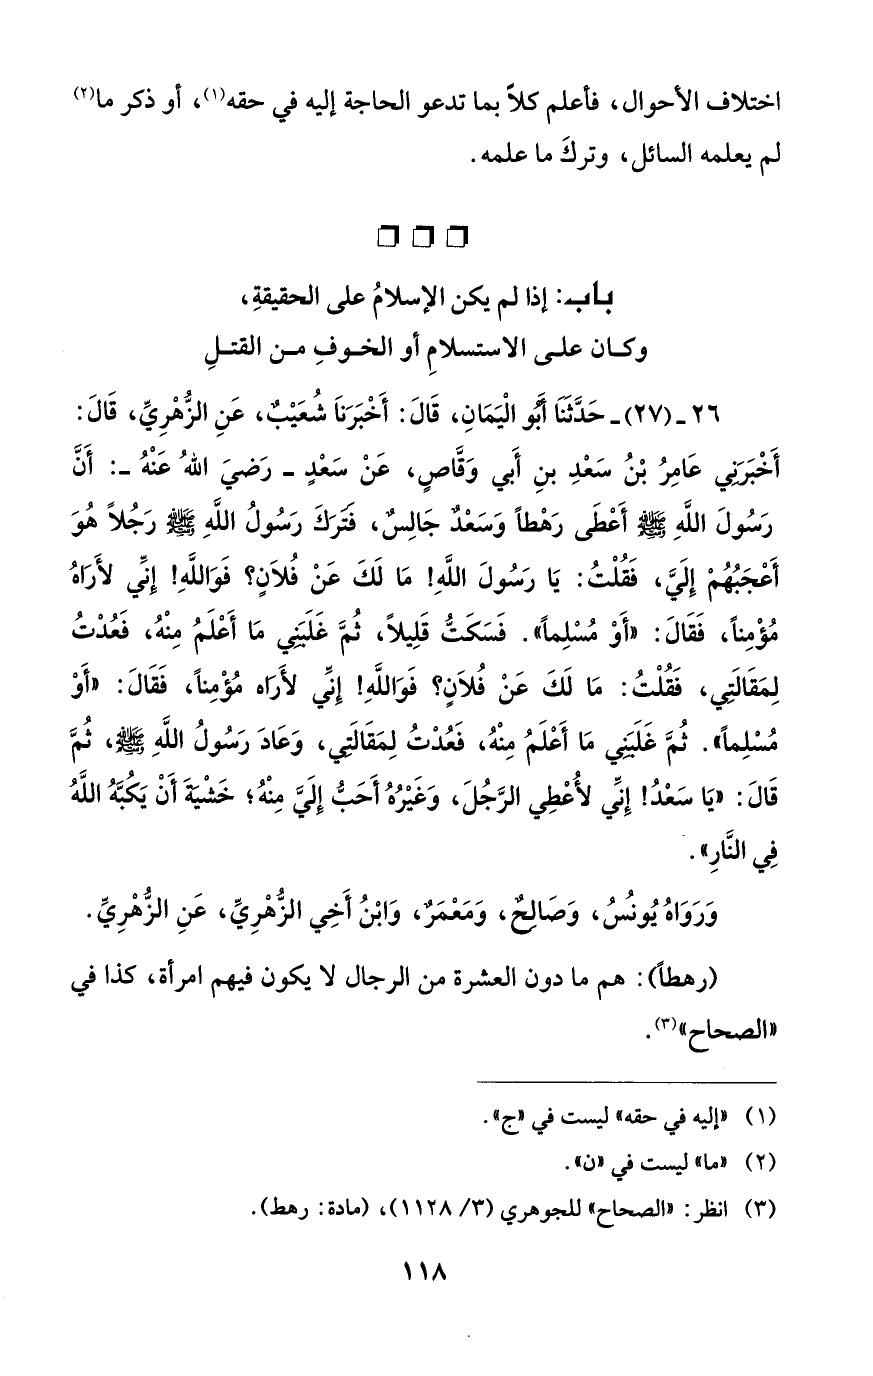 اختلاف الأحوال، فأعلم كلاً بما تدعو الحاجة إليه في حقه(١)، أو ذكر ما(٢)
لم يعلمه السائل، وتركَ ما علمه.
باب: إذا لم يكن الإسلامُ على الحقيقةِ،
وكان على الاستسلامِ أو الخوفِ من القتلِ
٢٦ ـ (٢٧) ـ حَدَّثَنَا أَبُو الْيَمَانِ، قَالَ: أَخْبَرَنَا شُعَيْبٌ، عَنِ الزُّهْرِيِّ، قَالَ:
أَخْبَرَنِي عَامِرُ بْنُ سَعْدِ بنِ أَبي وَقَّاصٍ، عَنْ سَعْدٍ ـ رَضيَ اللهُ عَنْهُ ـ: أَنَّ
رَسُولَ اللَّهِ ﷺ أَعْطَى رَهْطاً وَسَعْدٌ جَالِسٌ، فَتَرَكَ رَسُولُ اللَّهِ ﷺ رَجُلاً هُوَ
أَعْجَبُهُمْ إِلَيَّ، فَقُلْتُ: يَا رَسُولَ اللَّهِ! مَا لَكَ عَنْ فُلاَنٍ؟ فَوَاللَّهِ! إِنِّي لأَرَاهُ
مُؤْمِناً، فَقَالَ: «أَوْ مُسْلِماً». فَسَكَتُّ قَلِيلاً، ثُمَّ غَلَبَنِي مَا أَعْلَمُ مِنْهُ، فَعُدْتُ
لِمَقَالَتِي، فَقُلْتُ: مَا لَكَ عَنْ فُلاَنٍ؟ فَوَاللَّهِ! إِنِّي لأَرَاه مُؤْمِناً، فَقَالَ: «أَوْ
مُسْلِماً». ثُمَّ غَلَبَنِي مَا أَعْلَمُ مِنْهُ، فَعُدْتُ لِمَقَالَتِي، وَعَادَ رَسُولُ اللَّهِ ﷺ، ثُمَّ
قَالَ: «يَا سَعْدُ! إِنِّي لأُعْطِي الرَّجُلَ، وَغَيْرُهُ أَحَبُّ إِلَيَّ مِنْهُ؛ خَشْيَةَ أَنْ يَكُبَّهُ اللَّهُ
فِي النَّارِ».
وَرَوَاهُ يُونُسُ، وَصَالِحٌ، وَمَعْمَرٌ، وَابْنُ أَخِي الزُّهْرِيِّ، عَنِ الزُّهْرِيِّ.
(رهطاً): هم ما دون العشرة من الرجال لا يكون فيهم امرأة، كذا في
«الصحاح»(٣).
(١) «إليه في حقه» ليست في «ج».
(٢) «ما» ليست في «ن».
(٣) انظر: «الصحاح» للجوهري (٣/ ١١٢٨)، (مادة: رهط).
١١٨